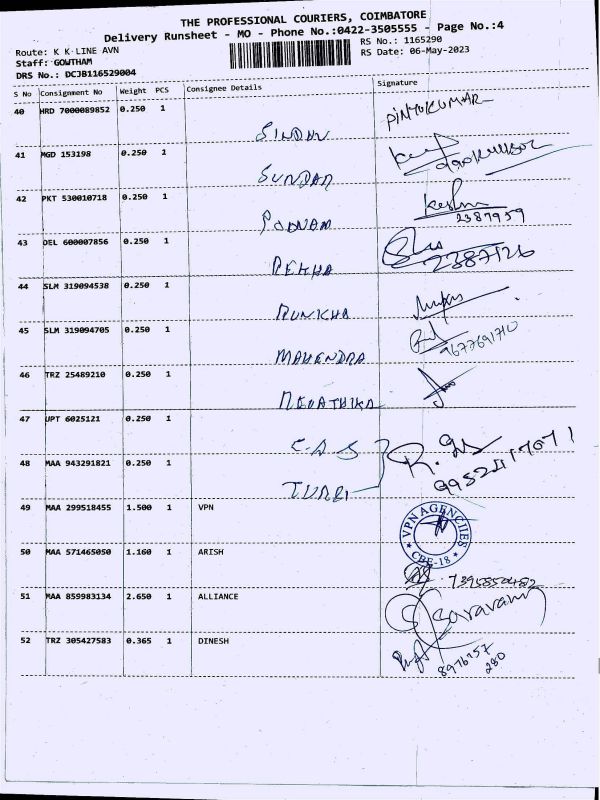 THE PROFESSIONAL COURIERS, COIMBATORE
Delivery Runsheet - MO - Phone No.:0422-3505555 - Page No.:4
Route: K K LINE AVN
RS No.: 1165290
Staff: GOWTHAM
RS Date: 06-May-2023
DRS No.: DCJB116529004
S No Consignment No Weight PCS Consignee Details Signature
40 HRD 7000089852 0.250 1 PINTUKUMAR
SINDHU
41 MGD 153198 0.250 1
SUNDAR
42 PKT 530010718 0.250 1
POONAM 2387959
43 DEL 600007856 0.250 1
REKHA 2387126
44 SLM 319094538 0.250 1
45 SLM 319094705 0.250 1
MAHENDRA 9677691710
46 TRZ 25489210 0.250 1
47 UPT 6025121 0.250 1
48 MAA 943291821 0.250 1 9952417071
49 MAA 299518455 1.500 1 VPN
VPN AGENCIES
CBE-18
50 MAA 571465050 1.160 1 ARISH
7395850482
51 MAA 859983134 2.650 1 ALLIANCE
Saravanan
52 TRZ 305427583 0.365 1 DINESH
8976757
280